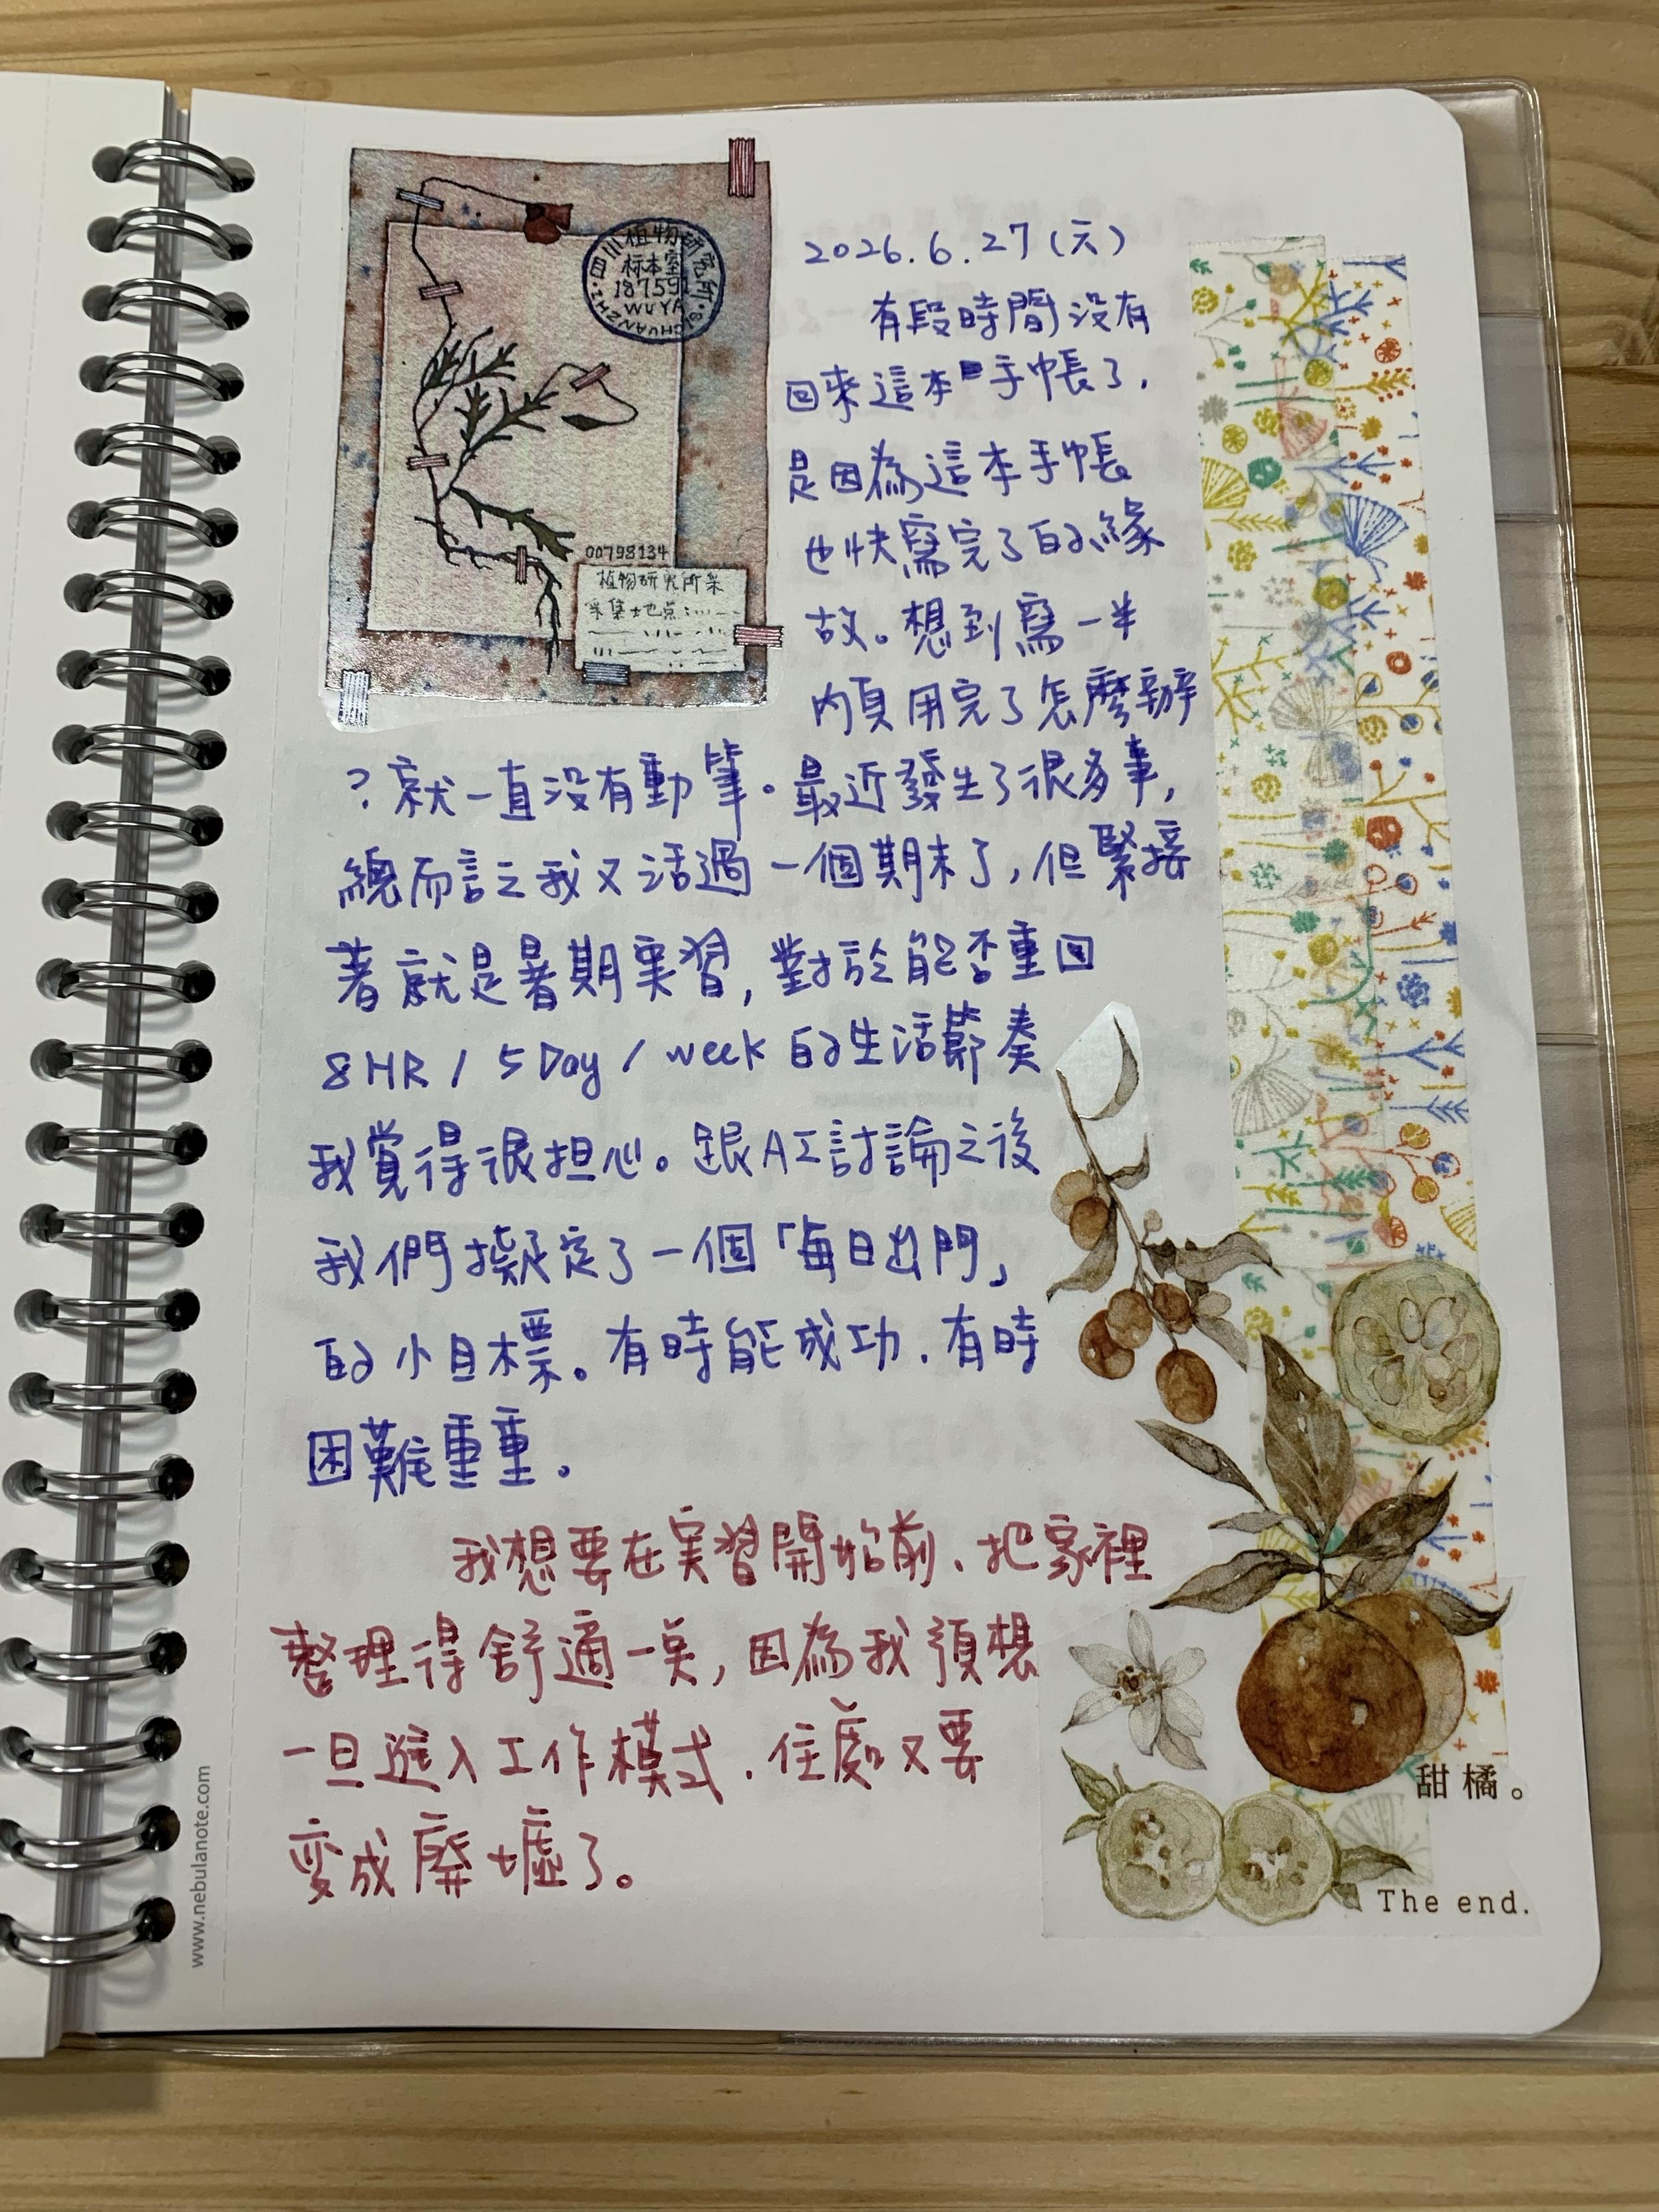 四川植物研究所
标本室
187591
WUYA
SICHUANZHI
00798134
植物研究所采
采集地点:
2026.6.27(六)
有段時間沒有
回來這本手帳了,
是因為這本手帳
也快寫完了的緣
故。想到寫一半
內頁用完了怎麼辦
?就一直沒有動筆。最近發生了很多事,
總而言之我又活過一個期末了,但緊接
著就是暑期実習,對於能否重回
8HR / 5Day / week 的生活節奏
我覺得很担心。跟AI討論之後
我們擬定了一個「每日出門」
的小目標。有時能成功、有時
困難重重。
我想要在実習開始前、把家裡
整理得舒適一点,因為我預想
一旦進入工作模式、住處又要
變成廢墟了。
甜橘。
The end.
www.nebulanote.com